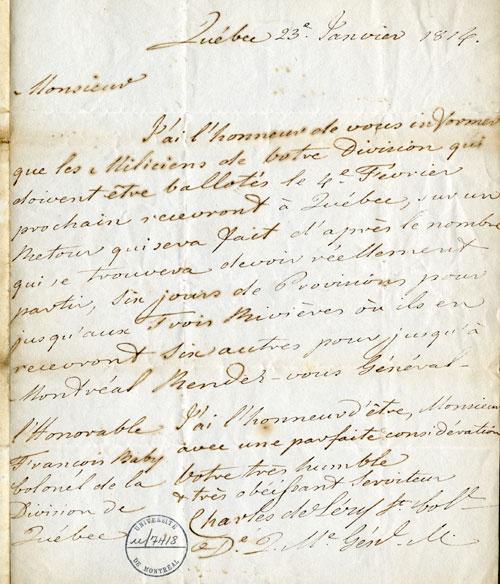 Québec 23e. Janvier 1814.
Monsieur
J'ai l'honneur de vous informer
que les Miliciens de votre Division qui
doivent être ballotés le 4e. Février
prochain recevront à Québec, sur un
Retour qui sera fait d'après le nombre
qui se trouvera devoir réellement
partir, six jours de Provisions pour
jusqu'aux Trois Rivières où ils en
recevront six autres pour jusqu'à
Montréal Rendez-vous Général-
J'ai l'honneur d'être, Monsieur
avec une parfaite considération
Votre très humble
& très obéissant Serviteur
Charles de Lery Lt. Col.
De. Q. Me. Genl. M.
l'Honorable
François Baby
Colonel de la
Division de
Québec
UNIVERSITÉ
u/7418
DE MONTRÉAL